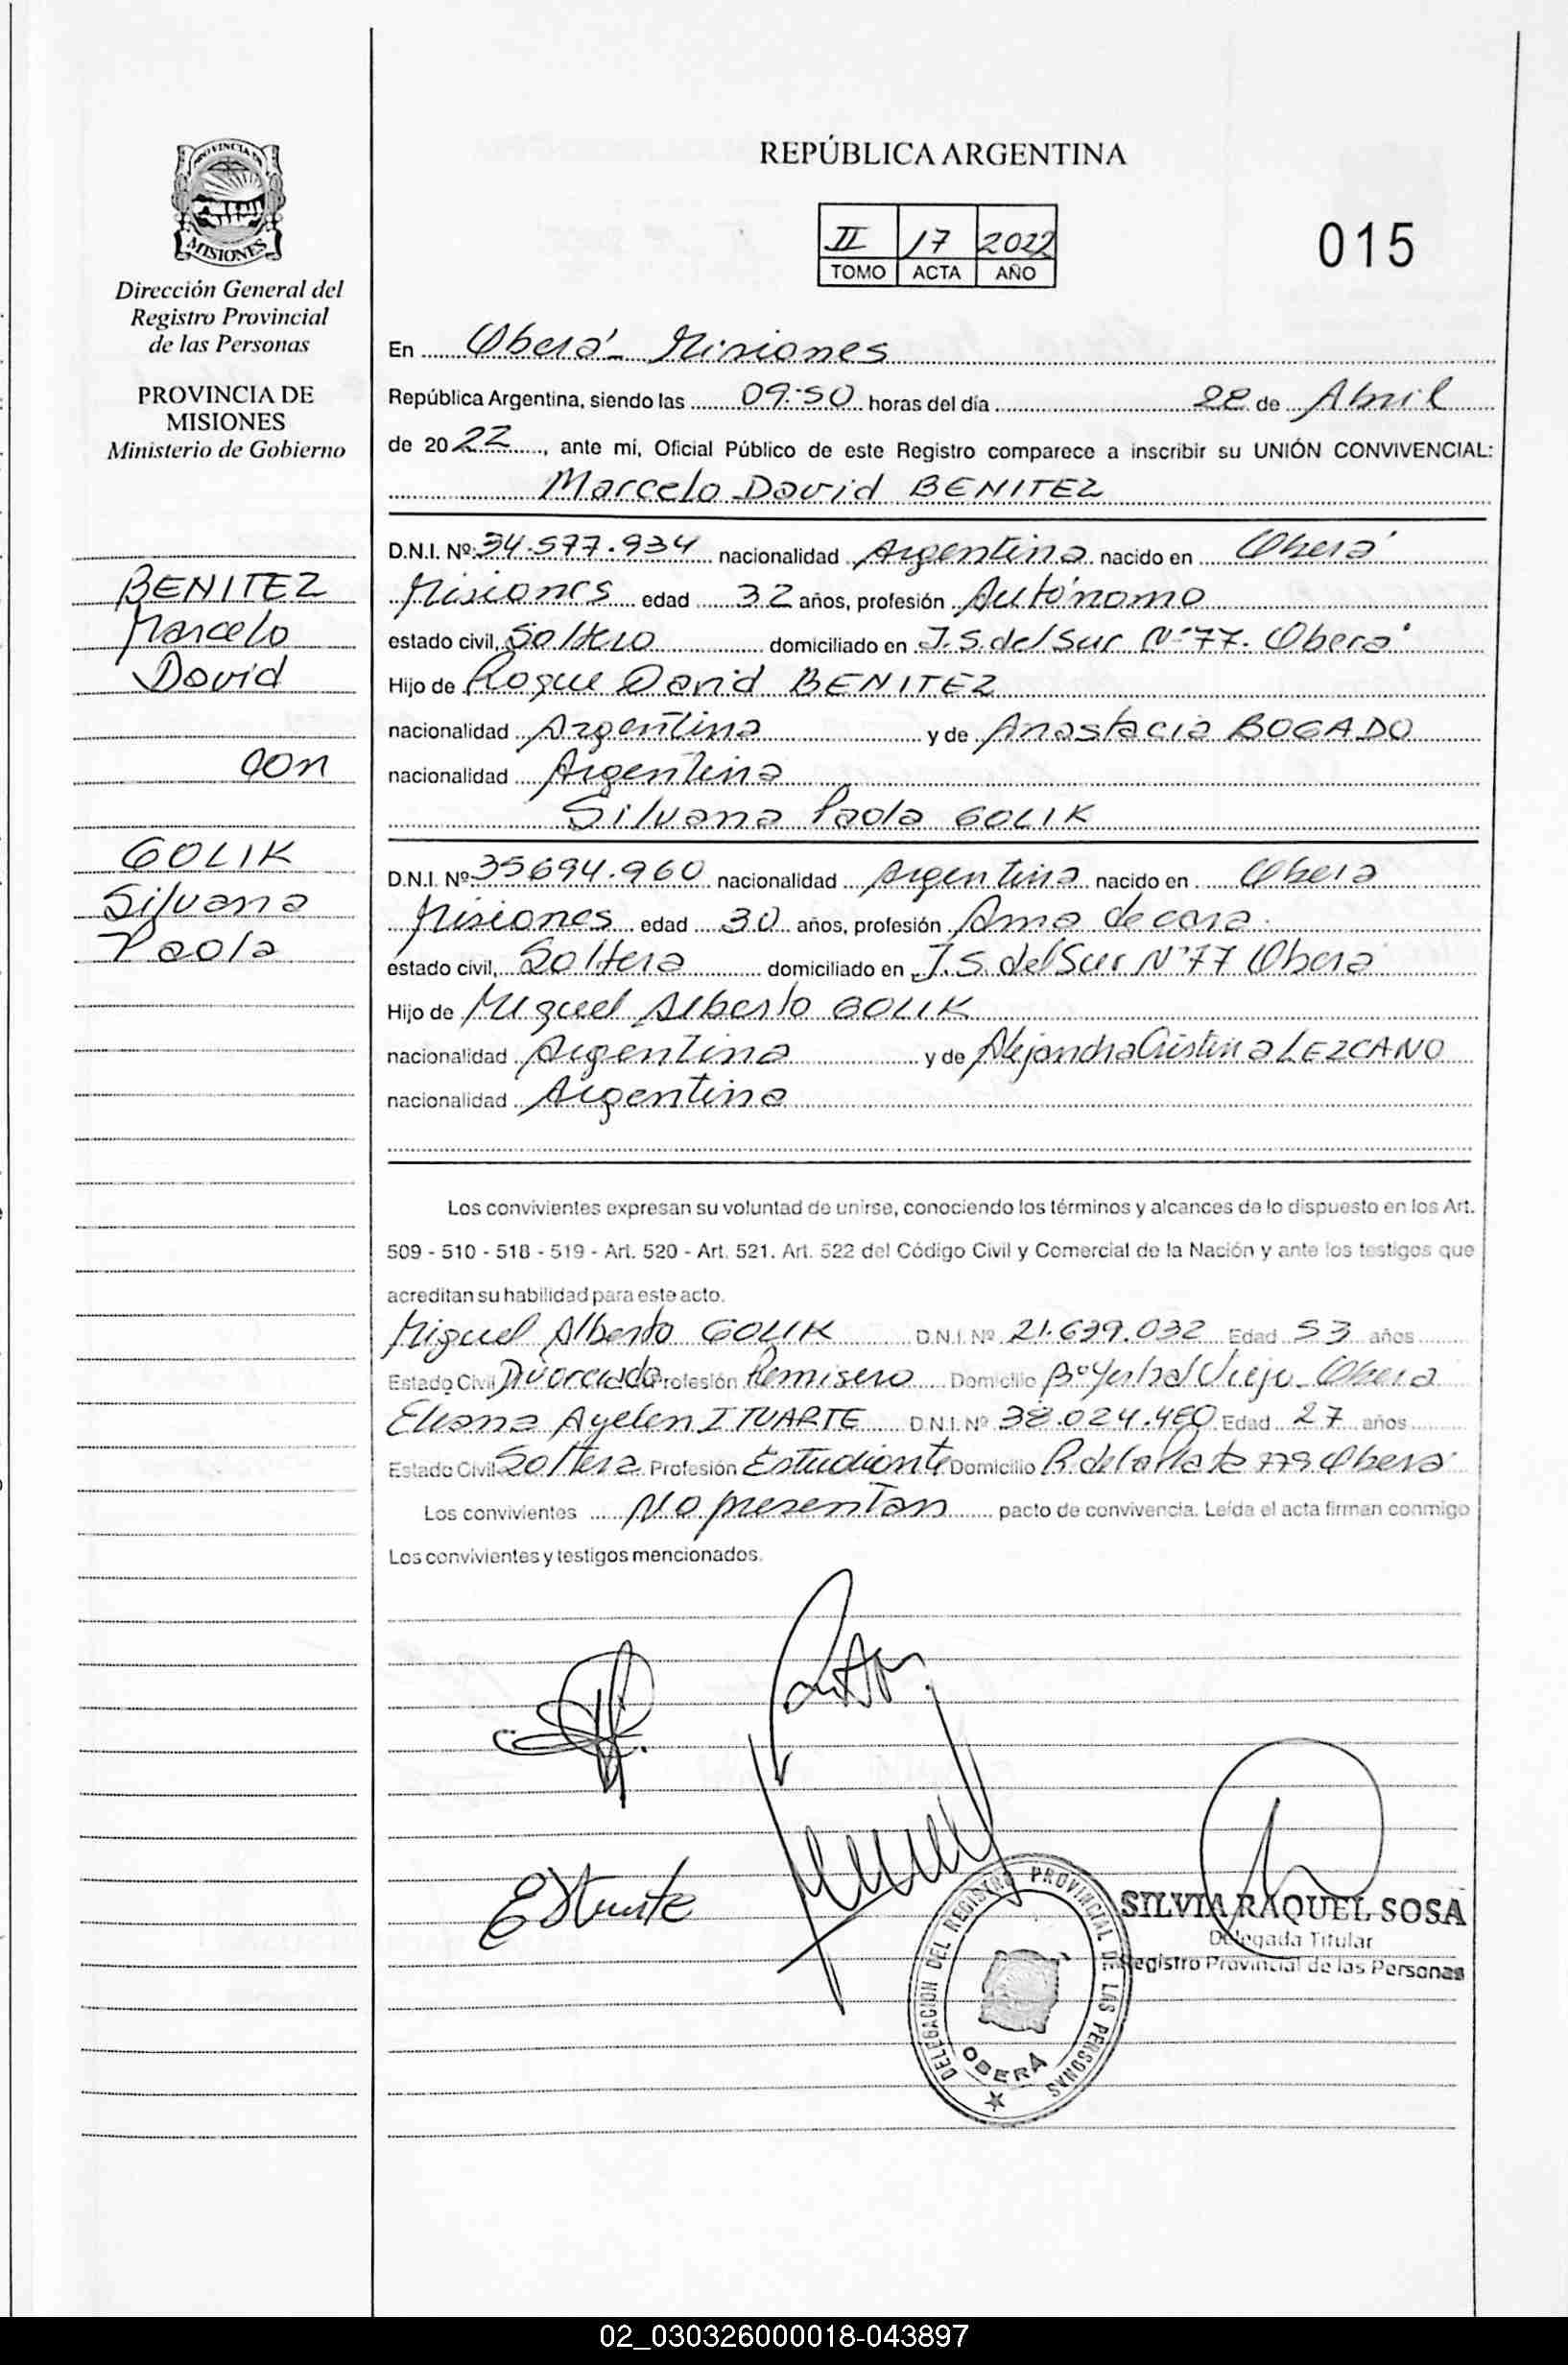 PROVINCIA DE
MISIONES
Dirección General del
Registro Provincial
de las Personas
PROVINCIA DE
MISIONES
Ministerio de Gobierno
BENITEZ
Marcelo
David
con
GOLIK
Silvana
Paola
REPÚBLICA ARGENTINA
II 17 2022
TOMO ACTA AÑO
015
En Oberá - Misiones
República Argentina, siendo las 09:50 horas del día 22 de Abril
de 2022, ante mí, Oficial Público de este Registro comparece a inscribir su UNIÓN CONVIVENCIAL:
Marcelo David BENITEZ
D.N.I. Nº 34.577.934 nacionalidad Argentina nacido en Oberá
Misiones edad 32 años, profesión Autónomo
estado civil, Soltero domiciliado en J.S. del Sur Nº 77. Oberá
Hijo de Roque David BENITEZ
nacionalidad Argentina y de Anastacia BOGADO
nacionalidad Argentina
Silvana Paola GOLIK
D.N.I. Nº 35694.960 nacionalidad Argentina nacido en Oberá
Misiones edad 30 años, profesión Ama de casa.
estado civil, Soltera domiciliado en J.S. del Sur Nº 77 Oberá
Hijo de Miguel Alberto GOLIK
nacionalidad Argentina y de Alejandra Cristina LEZCANO
nacionalidad Argentina
Los convivientes expresan su voluntad de unirse, conociendo los términos y alcances de lo dispuesto en los Art.
509 - 510 - 518 - 519 - Art. 520 - Art. 521. Art. 522 del Código Civil y Comercial de la Nación y ante los testigos que
acreditan su habilidad para este acto.
Miguel Alberto GOLIK D.N.I. Nº 21.629.032 Edad 53 años
Estado Civil Divorciado Profesión Remisero Domicilio Bº Yerbal Viejo - Oberá
Eliana Ayelen ITUARTE D.N.I. Nº 38.024.480 Edad 27 años
Estado Civil Soltera Profesión Estudiante Domicilio R. de la Plata 779 Oberá
Los convivientes No presentan pacto de convivencia. Leída el acta firman conmigo
Los convivientes y testigos mencionados.
EItuarte
SILVIA RAQUEL SOSA
Delegada Titular
Registro Provincial de las Personas
DELEGACION DEL REGISTRO PROVINCIAL DE LAS PERSONAS
OBERÁ
02_030326000018-043897